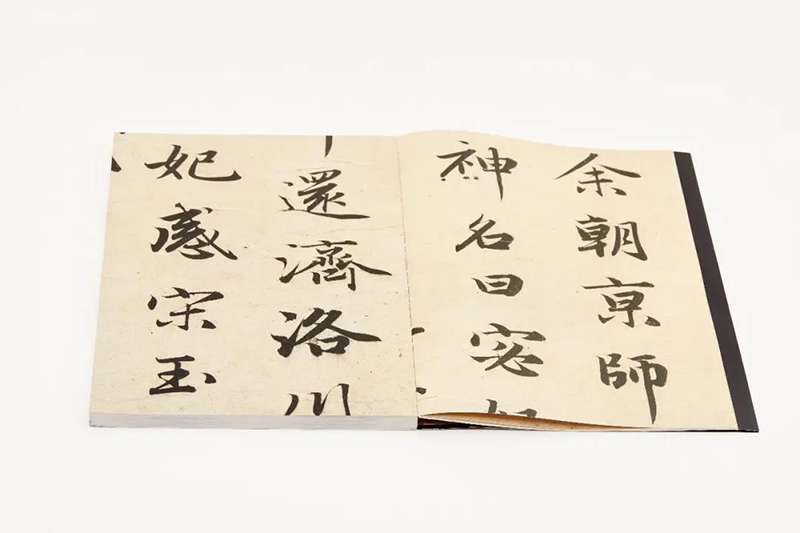 余朝亰師
神名曰宓
還濟洛川
妃感宋玉